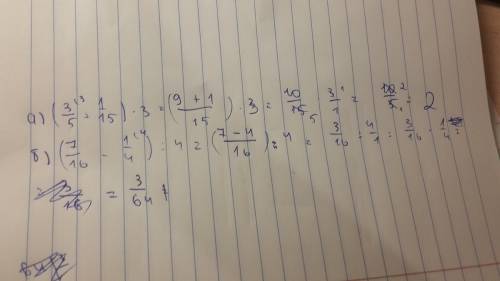 а) (3/5 + 1/15) · 3 = (9 + 1 / 15) · 3 = 10/15 · 3/1 = 10/5 = 2
б) (7/16 - 1/4) : 4 = (7 - 4 / 16) : 4 = 3/16 : 4/1 = 3/16 · 1/4 =
= 3/64